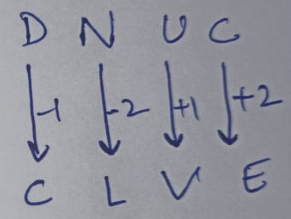 D N U C
-1 -2 +1 +2
C L V E